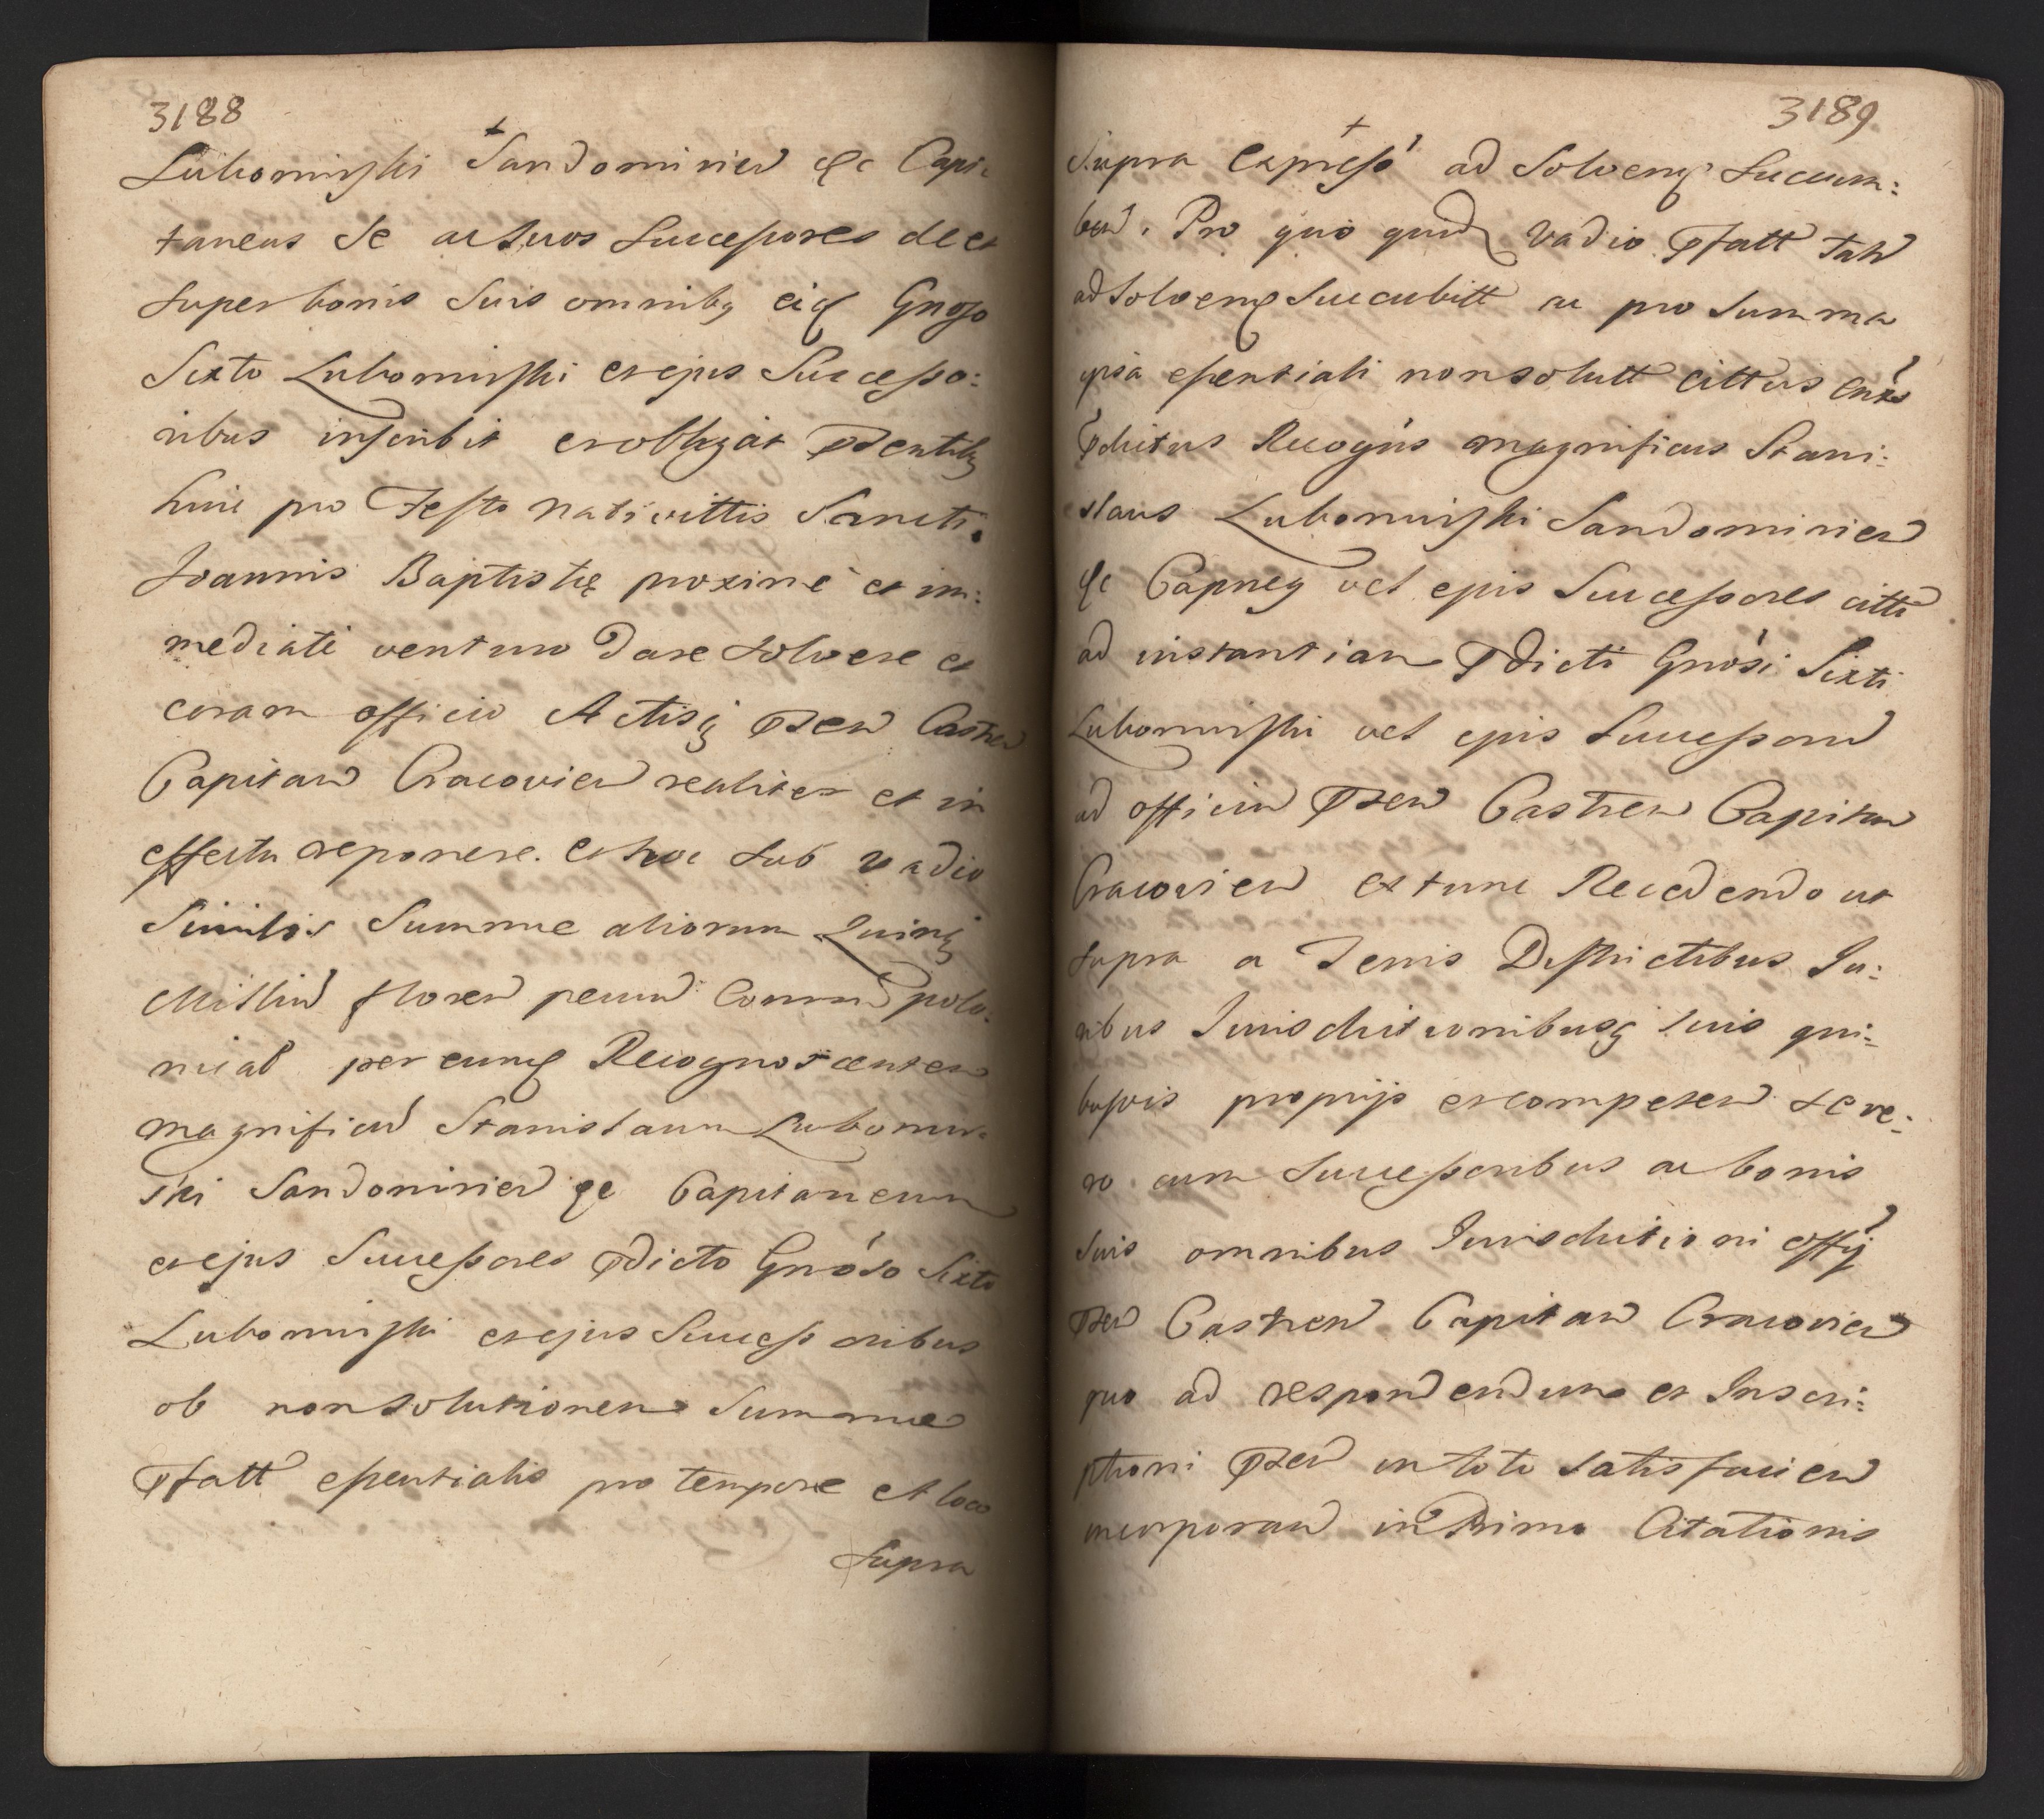 3188
Lubomirski Sandomirien &c Capi-
taneus Se ac Suos Successores de et
super bonis Suis omnibq eid Gnoso
Sixto Lubomirski et ejus Successo:
ribus inscribit et obligat Psentibq
hinc pro Festo Nativittis Sancti
Joannis Baptistę proxime et im:
mediate venturo Dare Solvere et
coram officio Actisq psen Castren
Capitan Cracovien realiter et in
effectu reponere. et hoc Sub vadio
Similis Summae aliorum Quinq
Millin floren pecun Commun polo:
nical per eund Recognoscenten
magnificu Stanislaum Lubomir-
ski Sandomirien &c Capitaneum
et ejus Successores pdicto Gnoso Sixto
Lubomirski et ejus Successoribus
ob non Solutionem Summae
pfatt essentialis pro tempore et loco
Supra
3189
Supra Expresso ad Solvend Succum:
ben. Pro quo quid vadio pfatt tan
ad Solvend Succubitt ac pro Summa
ipsa essentiali non solutt cittus
pdictus Recogns magnificus Stani:
slaus Lubomirski Sandomirien
&c Capneq vel ejus Successores citti
ad instantiam pdicti Gnosi Sixti
Lubomirski vel ejus Successorn
ad officiu psen Castren Capitan
Cracovien ex tunc Recedendo ut
supra a Terris Districtibus Ju:
ribus Jurisdictionibusq suis qui:
busvis proprijs et competen Se ve:
ro cum Successoribus ac bonis
Suis omnibus Jurisdictioni offij
psen Castren Capitan Cracovien
quo ad respondendum et Inscri:
ptioni psen in toto satisfacien
incorporan in Primo Citationis